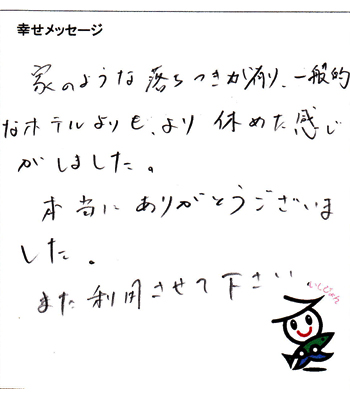 幸せメッセージ
家のような落ちつきが有り、一般的
なホテルよりも、より休めた感じ
がしました。
本当にありがとうございま
した。
また利用させて下さい